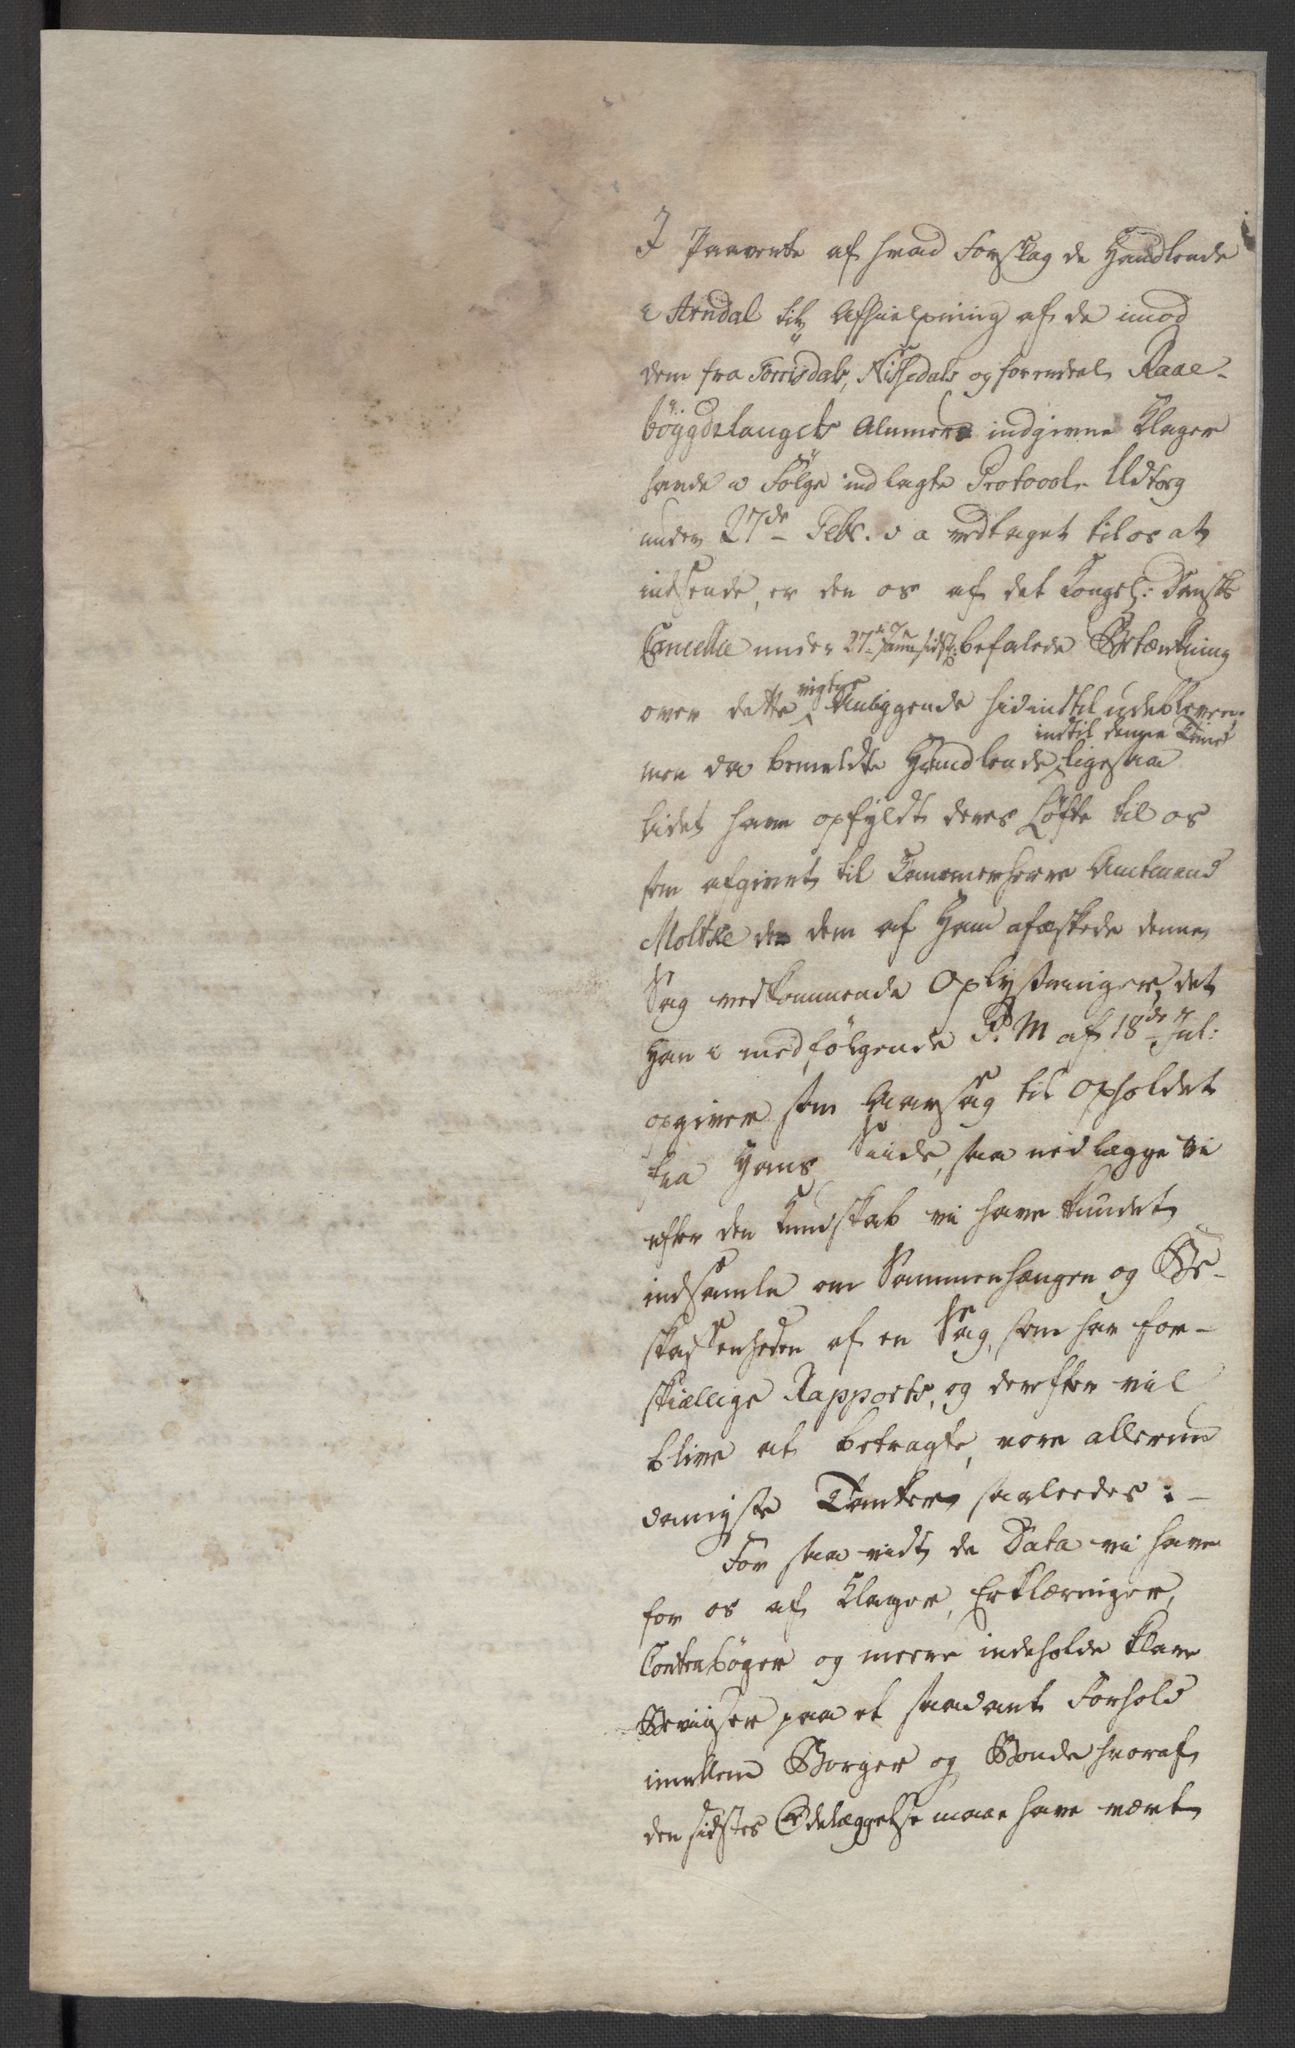 I Paavente af hvad Forslag de Handlende
i Arndal til Afhielpning af de imod
dem fra Torrisdals, Nissedals og forendeel Raae-
böÿgdelaugets Almuer indgivne Klager
havde i Følge indlagte Protocol- Udtog
under 27de Febr. d a vedtaget til os at
indsende, er den os af det Kongel: Danske
Cancellie under 27de Junii sidst: befalede Betænkning
over dette vigtige Anliggende hidindtil udebleven;
men da bemeldte Handlende indtil denne Time ligesaa
lidet have opfyldt deres Løfte til os
som afgivet til Kammerherre Amtmand
Moltke de dem af Ham afæskede denne
Sag vedkommende Oplysninger, det
Han i medfølgende P. M af 18de Jul:
opgiver som Aarsag til Opholdet
fra Hans Siide, saa nedlægge vi
efter den Kundskab vi have kundet
indsamle om Sammenhængen og Be-
skaffenheden af en Sag, som har for-
skiællige Rapports, og derefter vil
blive at betragte, vore allerun
danigste Tanker saaledes: -
For saavidt de Data vi have
for os af Klager, Erklæringer,
Contrabøger og meere indeholde klare
Beviiser paa et saadant Forhold
imellem Borger og Bonde hvoraf
den sidstes Ødelæggelse maae have været